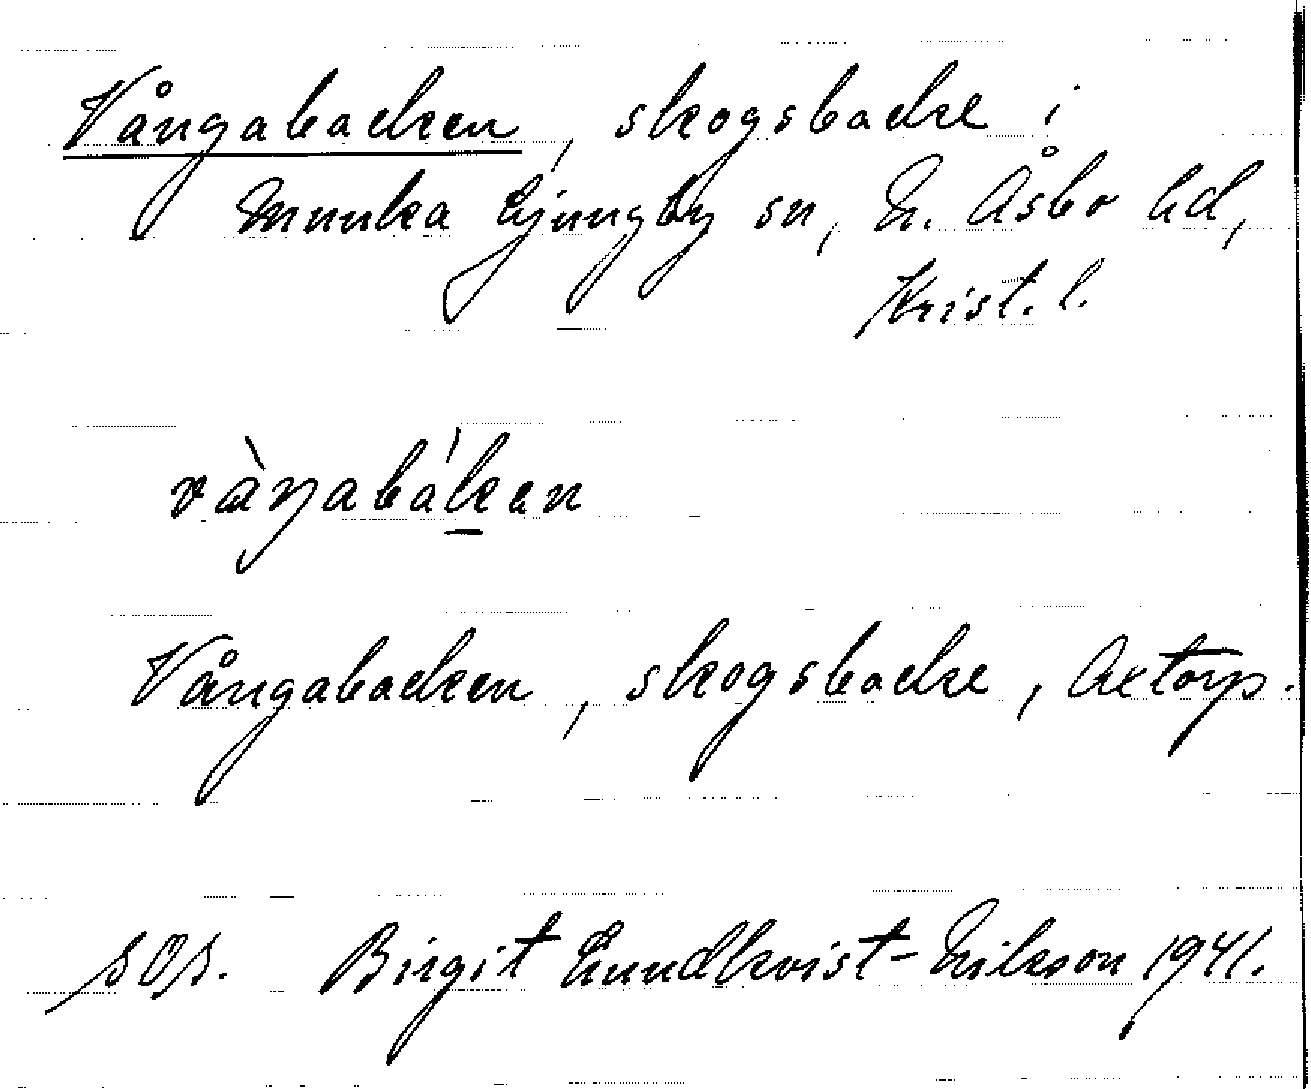 Vångabacken, skogsbacke i
Munka Ljungby sn, N. Åsbo hd,
Krist. l.
vàŋabáken
Vångabacken, skogsbacke, Axtorp.
SOS. Birgit Lundkvist-Nilsson 1941.